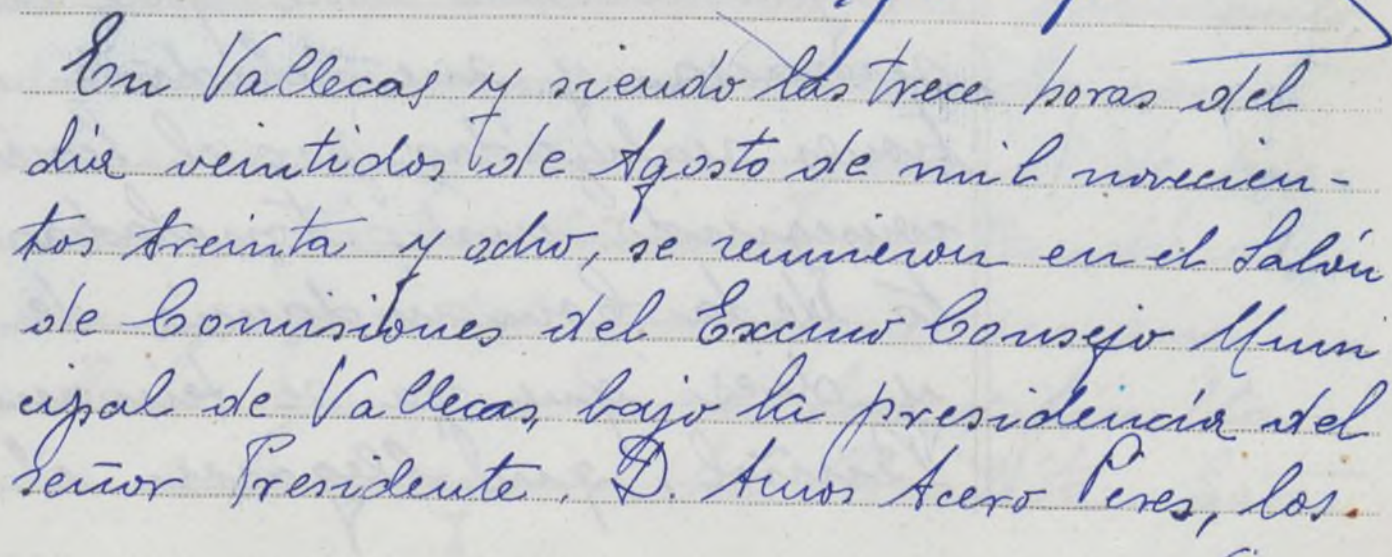 En Vallecas y siendo las trece horas del
dia veintidos de Agosto de mil novecien-
tos treinta y ocho, se reunieron en el Salón
de Comisiones del Excmo Consejo Muni
cipal de Vallecas, bajo la presidencia del
señor Presidente. D. Amos Acero Peres, los